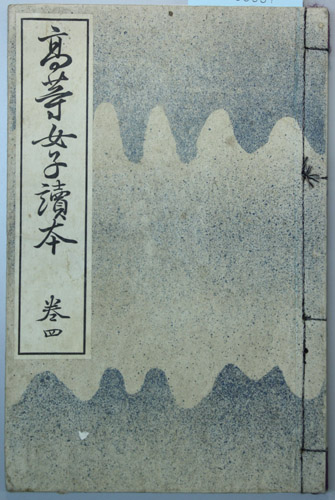 高等女子讀本
巻四